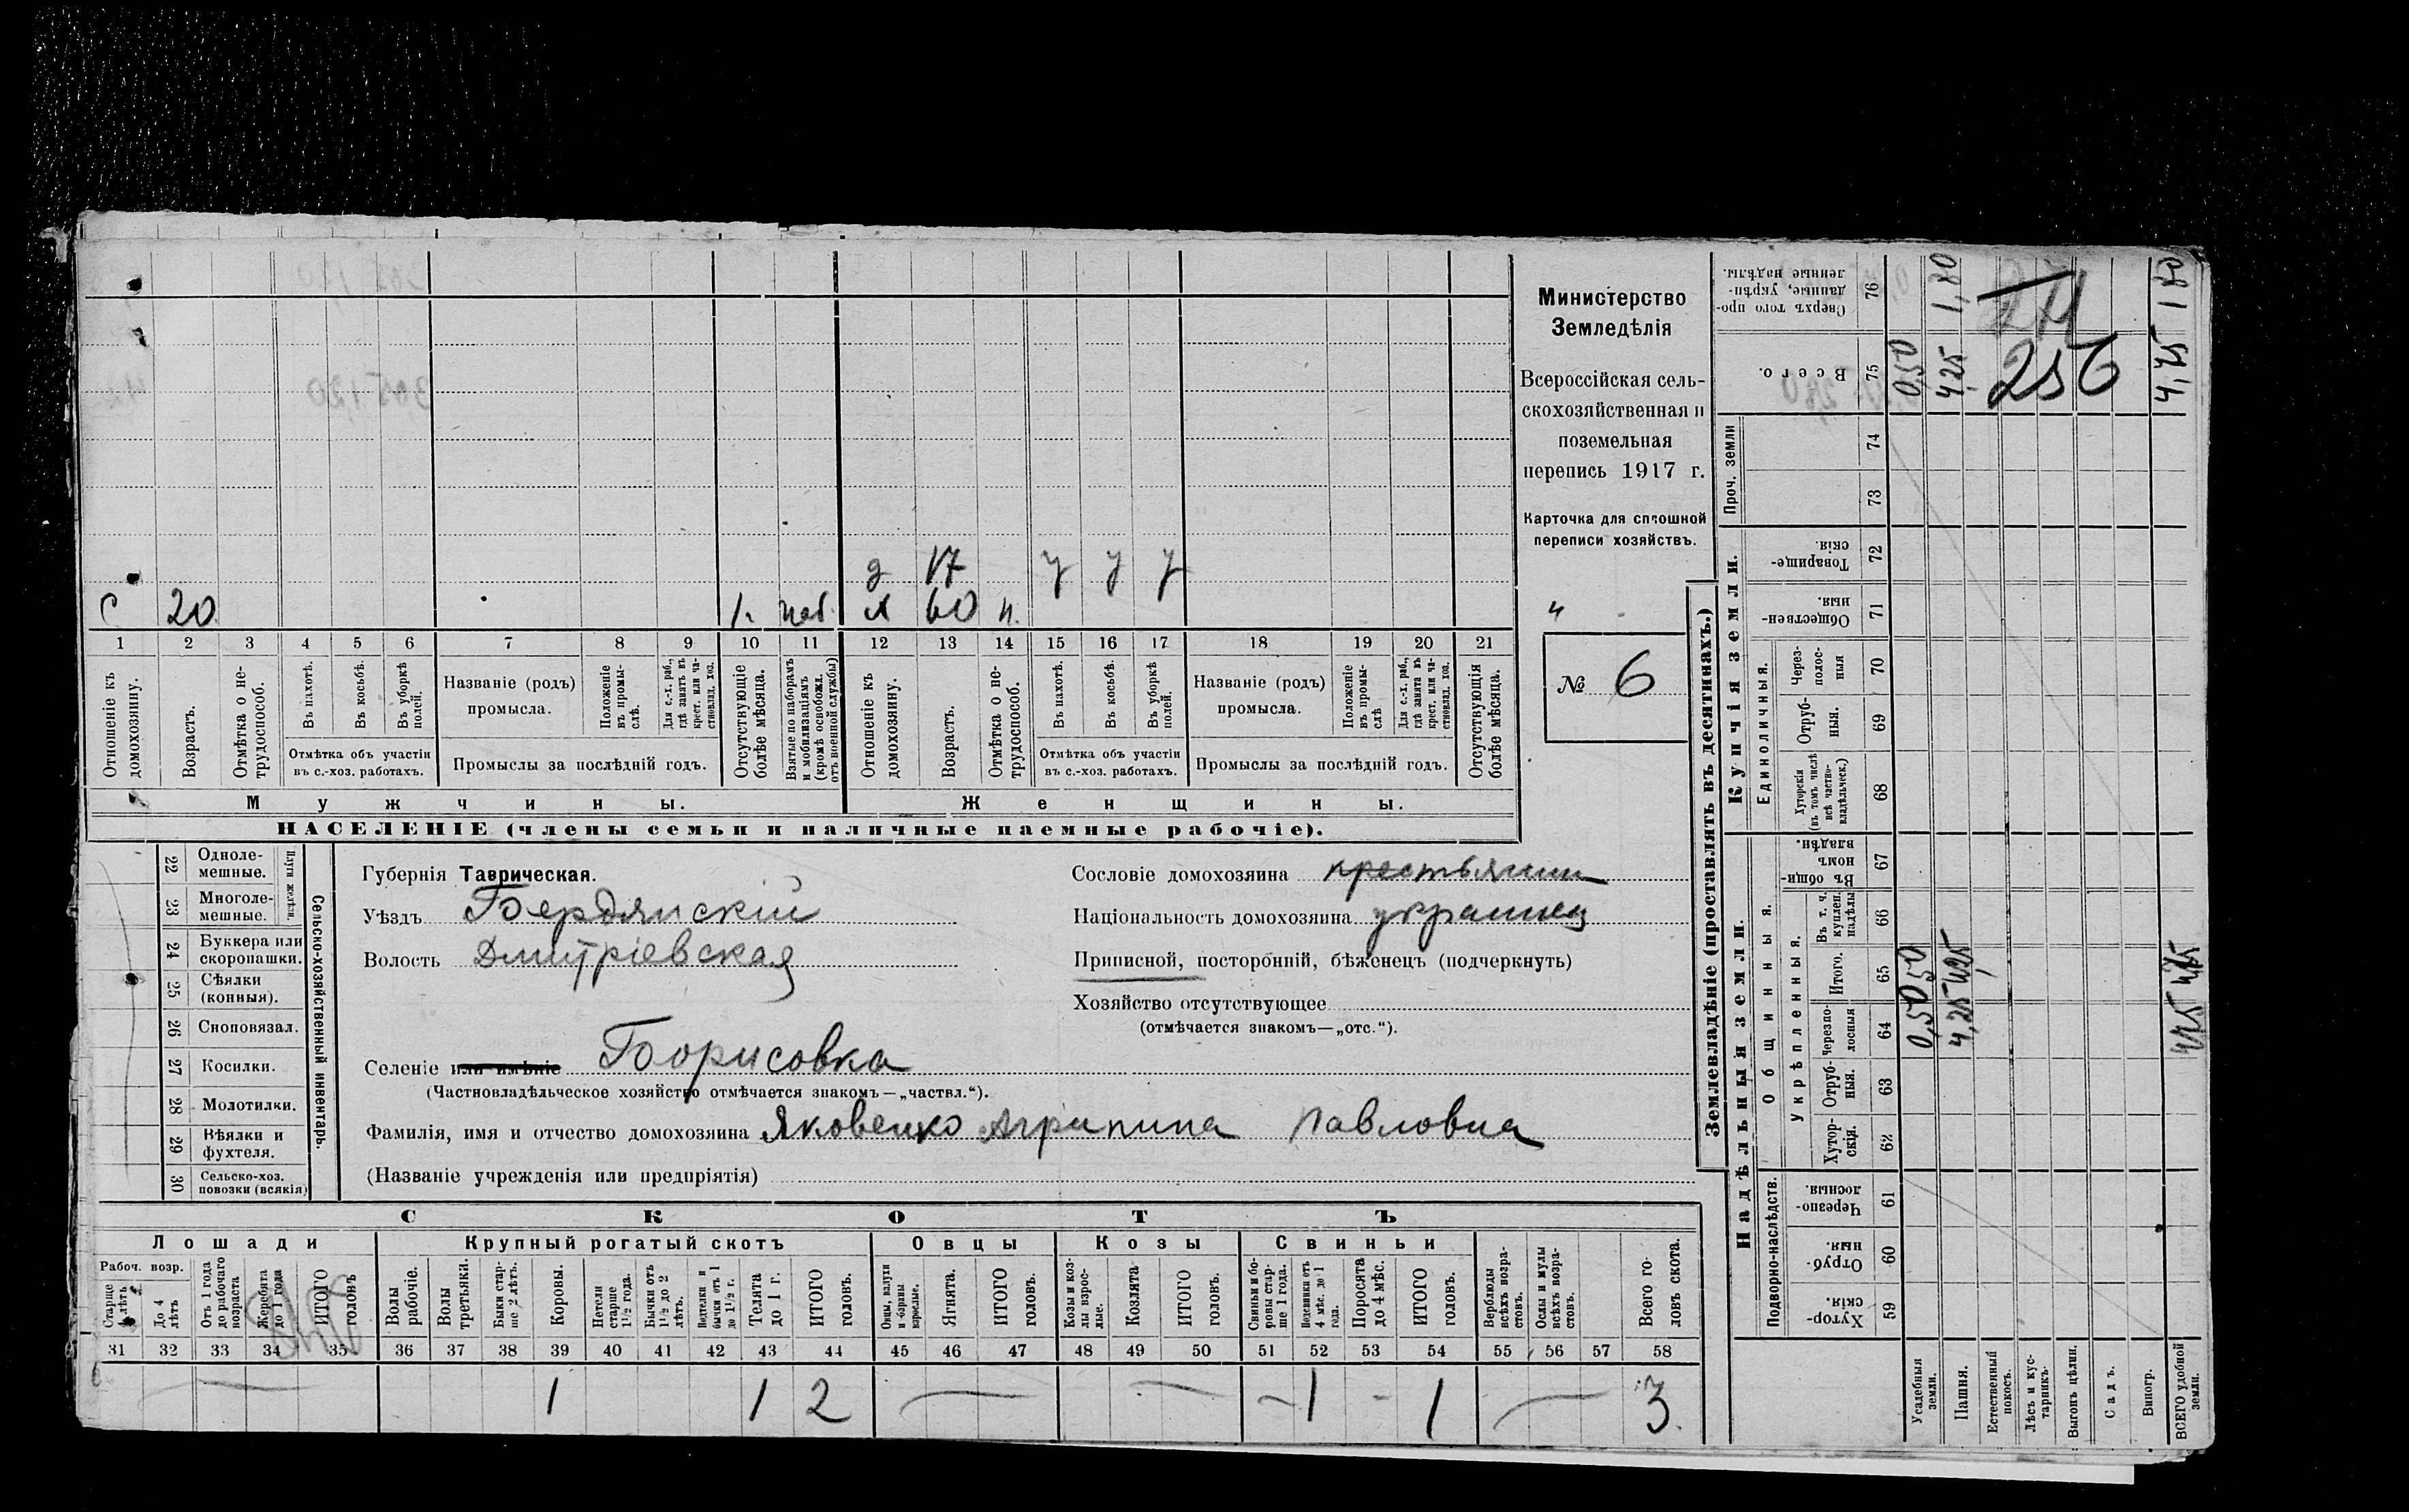 Министерство
Земледѣлія
Всероссійская сель-
скохозяйственная и
поземельная
перепись 1917 г.
Карточка для сплошной
переписи хозяйствъ.
№ 6
д 17 у у у
с 20 1. 60 н.
1 2 3 4 5 6 7 8 9 10 11 12 13 14 15 16 17 18 19 20 21
Отношеніе къ домохозяину.
Возрастъ.
Отмѣтка о не-трудоспособ.
Въ пахотѣ.
Въ косьбѣ.
Въ уборкѣ полей.
Отмѣтка объ участіи
въ с.-хоз. работахъ.
Названіе (родъ)
промысла.
Положеніе въ промы-слѣ.
Для с.-х. раб., гдѣ занятъ въ крест. или ча-ствовлад. хоз.
Промыслы за послѣдній годъ.
Отсутствующіе болѣе мѣсяца.
Взятые по наборамъ и мобилизаціямъ (кромѣ освобожд. отъ военной службы)
Отношеніе къ домохозяину.
Возрастъ.
Отмѣтка о не-трудоспособ.
Въ пахотѣ.
Въ косьбѣ.
Въ уборкѣ полей.
Отмѣтка объ участіи
въ с.-хоз. работахъ.
Названіе (родъ)
промысла.
Положеніе въ промы-слѣ
Для с.-х. раб., гдѣ занята въ крест. или ча-ствовлад. хоз.
Промыслы за послѣдній годъ.
Отсутствующія болѣе мѣсяца.
Мужчины.
Женщины.
НАСЕЛЕНІЕ (члены семьи и наличные наемные рабочіе).
Сельско-хозяйственный инвентарь.
22 Одноле-мешные.
23 Многоле-мешные.
24 Буккера или скоропашки.
25 Сѣялки (конныя).
26 Сноповязал.
27 Косилки.
28 Молотилки.
29 Вѣялки и фухтеля.
30 Сельско-хоз. повозки (всякія)
Губернія Таврическая.
Уѣздъ Бердянскій
Волость Дмитріевская
Сословіе домохозяина крестьянин
Національность домохозяина украинец
Приписной, посторонній, бѣженецъ (подчеркнуть)
Хозяйство отсутствующее
(отмѣчается знакомъ—„отс.“).
Селеніе или имѣніе Борисовка
(Частновладѣльческое хозяйство отмѣчается знакомъ—„частвл.“).
Фамилія, имя и отчество домохозяина Яковенко Агрипина Павловна
(Названіе учрежденія или предпріятія)
СКОТЪ
Лошади Крупный рогатый скотъ Овцы Козы Свиньи
Рабоч. возр.
Старше 4 лѣтъ
До 4 лѣтъ
Отъ 1 года до рабочаго возраста
Жеребята до 1 года
ИТОГО головъ
Волы рабочіе.
Волы третьяки.
Быки стар-ше 2 лѣтъ.
Коровы.
Нетели старше 1½ года.
Бычки отъ 1½ до 2 лѣтъ.
Подтелки и бычки отъ 1 до 1½ г.
Телята до 1 г.
ИТОГО головъ.
Овцы, валухи и бараны взрослые.
Ягнята.
ИТОГО головъ.
Козы и коз-лы взрос-лые.
Козлята
ИТОГО головъ.
Свиньи и бо-ровы стар-ше 1 года.
Подсвинки отъ 4 мѣс. до 1 года.
Поросята до 4 мѣс.
ИТОГО головъ.
Верблюды всѣхъ возра-стовъ.
Ослы и мулы всѣхъ возра-стовъ.
Всего го-ловъ скота.
31 32 33 34 35 36 37 38 39 40 41 42 43 44 45 46 47 48 49 50 51 52 53 54 55 56 57 58
— 1 1 2 — — – 1 – 1 — 3
Землевладѣніе (проставлять въ десятинахъ.)
Надѣльныя земли.
Купчія земли.
Проч. земли
Подворно-наслѣдств.
Общинныя.
Укрѣпленныя.
Единоличныя.
Сверхъ того про-данные, укрѣп-ленные надѣлы. 76
Всего. 75
74
73
Товарище-скія. 72
Обществен-ныя. 71
Через-полос-ныя 70
Отруб-ныя. 69
Хуторскія (въ томъ числѣ всѣ частно-владѣльческ.) 68
Въ общи-номъ владѣн. 67
Въ т. ч. куплен. надѣлы 66
Итого. 65
Черезпо-лосныя 64
Отруб-ныя. 63
Хутор-скія. 62
Черезпо-лосныя. 61
Отруб-ныя. 60
Хутор-скія. 59
Усадебныя земли. 0,50 0,50 0,50
Пашня. 4,25 4,25 4,25 1,80
Естественный покосъ.
Лѣсъ и кус-тарникъ.
Выгонъ цѣлин.
Садъ.
Виногр.
ВСЕГО удобной земли. 4,75 1 80
256